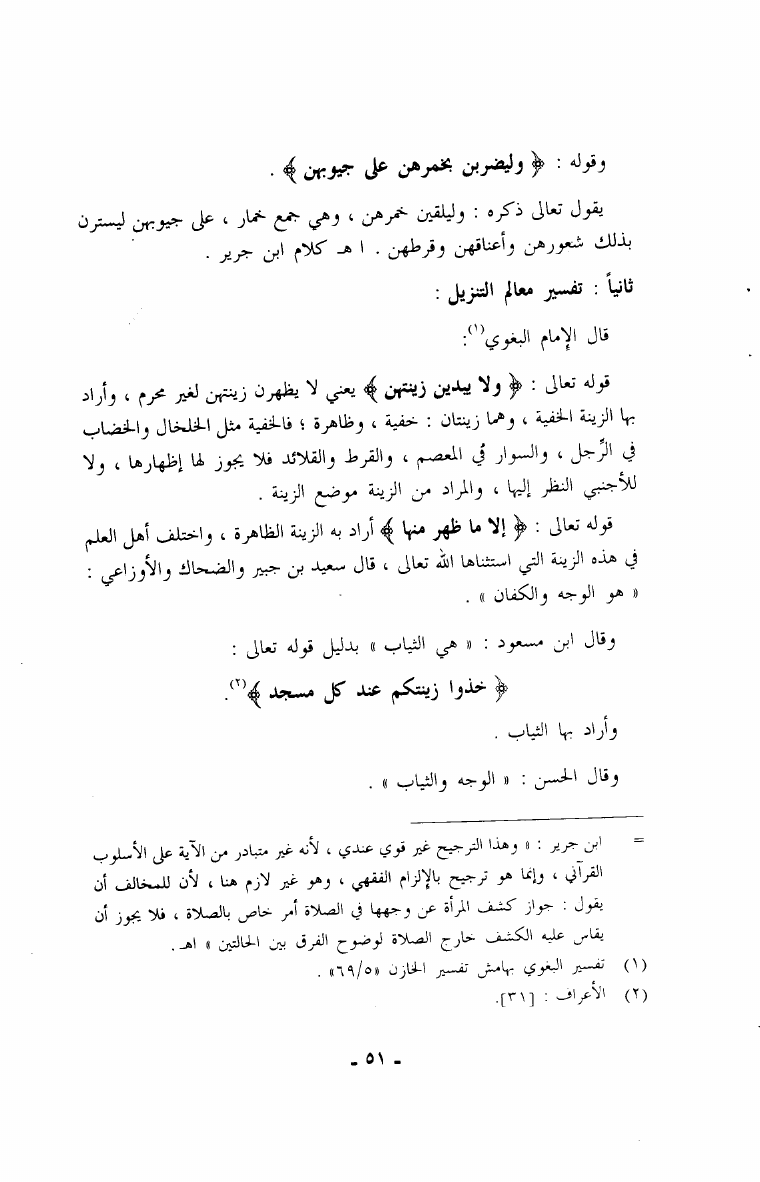 وقوله : ﴿ وليضربن بخمرهن على جيوبهن ﴾ .
يقول تعالى ذكره : وليلقين خمرهن ، وهي جمع خمار ، على جيوبهن ليسترن
بذلك شعورهن وأعناقهن وقرطهن . ا هـ كلام ابن جرير .
ثانياً : تفسير معالم التنزيل :
قال الإمام البغوي(١):
قوله تعالى : ﴿ ولا يبدين زينتهن ﴾ يعني لا يظهرن زينتهن لغير محرم ، وأراد
بها الزينة الخفية ، وهما زينتان : خفية ، وظاهرة ؛ فالخفية مثل الخلخال والخضاب
في الرِّجل ، والسوار في المعصم ، والقرط والقلائد فلا يجوز لها إظهارها ، ولا
للأجنبي النظر إليها ، والمراد من الزينة موضع الزينة .
قوله تعالى : ﴿ إلا ما ظهر منها ﴾ أراد به الزينة الظاهرة ، واختلف أهل العلم
في هذه الزينة التي استثناها الله تعالى ، قال سعيد بن جبير والضحاك والأوزاعي :
« هو الوجه والكفان » .
وقال ابن مسعود : « هي الثياب » بدليل قوله تعالى :
﴿ خذوا زينتكم عند كل مسجد ﴾(٢).
وأراد بها الثياب .
وقال الحسن : « الوجه والثياب » .
= ابن جرير : « وهذا الترجيح غير قوي عندي ، لأنه غير متبادر من الآية على الأسلوب
القرآني ، وإنما هو ترجيح بالإلزام الفقهي ، وهو غير لازم هنا ، لأن للمخالف أن
يقول : جواز كشف المرأة عن وجهها في الصلاة أمر خاص بالصلاة ، فلا يجوز أن
يقاس عليه الكشف خارج الصلاة لوضوح الفرق بين الحالتين » اهـ .
(١) تفسير البغوي بهامش تفسير الخازن «٦٩/٥» .
(٢) الأعراف : [٣١].
ـ ٥١ ـ